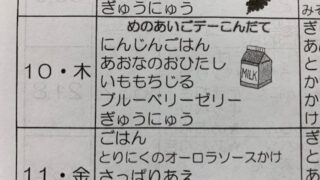 ぎゅうにゅう
めのあいごデーこんだて
にんじんごはん
あおなのおひたし
10・木
いももちじる
MILK
ブルーベリーゼリー
ぎゅうにゅう
ごはん
とりにくのオーロラソースかけ
11・金
さっぱりあえ